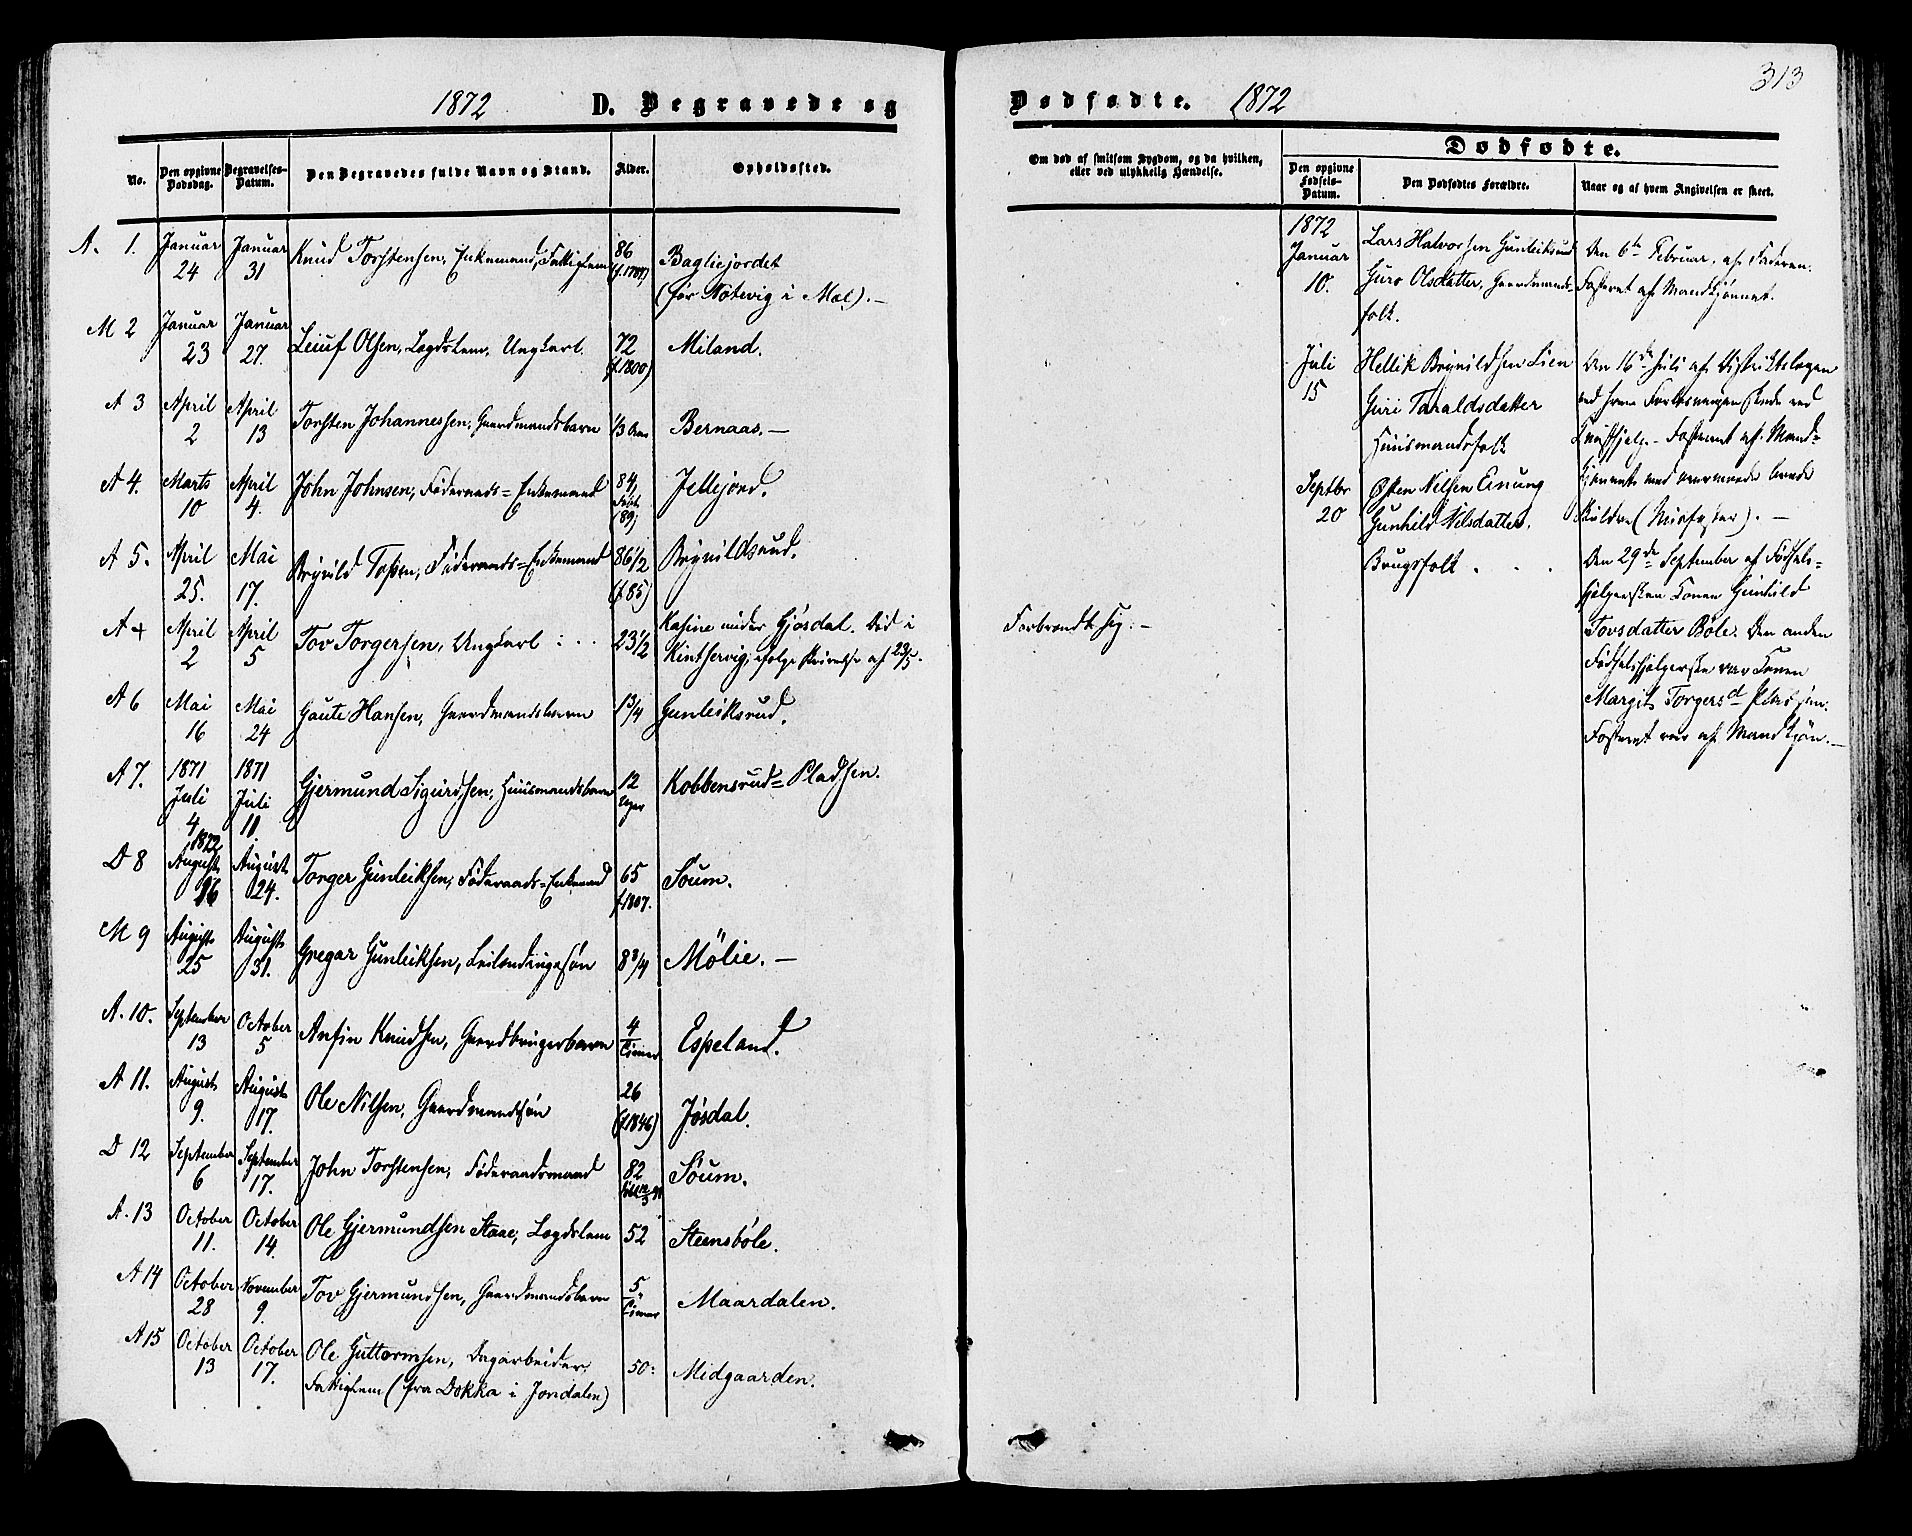 313
1872 D. Begravede og Dødfødte. 1872
No.
Den opgivne Dødsdag.
Begravelses-Datum.
Den Begravedes fulde Navn og Stand.
Alder.
Opholdssted.
Om død af smitsom Sygdom, og da hvilken,
eller ved ulykkelig Hændelse.
Dødfødte.
Den opgivne Fødsels-Datum.
Den Dødfødtes Forældre.
Naar og af hvem Angivelsen er skeet.
A. 1. Januar 24 Januar 31 Knud Torstensen, Enkemand, Fattiglem 86 Bagliejordet
(før Nøtevig i Mæl). —
M 2 Januar 23 Januar 27. Leiuf Olsen, Lægdslem, Ungkarl. 72 (f. 1800) Miland.
A 3 April 2 April 13 Torsten Johannessen, Gaardmandsbarn 1/3 Aar Bernaas. —
A 4. Marts 10 April 4. John Johnsen, Føderaads=Enkemand 84, født (89) Jellejord.
A 5. April 25. Mai 17. Brynild Tossen, Føderaads=Enkemand 86 1/2 (f 85) Brynildsrud.
A + April 2 April 5 Tov Torgersen, Ungkarl 23 1/2 Kasine under Gjøsdal. Død i
Kintservig, ifølge Skrivelse af 23/5.
Forbrændt sig. —
A 6 Mai 16 Mai 24 Gaute Hansen, Gaardmandsbarn 1 3/4 Gunleiksrud.
A 7. 1871 Juli 4 1871 Juli 11. Gjermund Sigurdsen, Huusmandsbarn 12 Uger Kobbensrud=Pladsen.
D 8 1872 August 16 August 24. Torger Gunleiksen, Føderaads=Enkemand 65 f. 1807. Søum.
M 9 August 25 August 31. Gregar Gunleiksen, Leilændingssøn 8 3/4 Mølie. —
A. 10. September 13 October 5 Anfin Knudsen, Gaardbrugerbarn 4 Timer Espeland.
A 11. August 9. August 17. Ole Nilsen, Gaardmandssøn 26 (f. 1846) Jøsdal.
D 12 September 6 September 17. John Torstensen, Føderaadsmand 82 Søum.
A. 13 October 11. October 14. Ole Gjermundsen Staae, Lægdslem 52 Steensbøle.
A 14 October 28 November 9. Tov Gjermundsen, Gaardmandsbarn 5 Timer Maardalen.
A 15 October 13 October 17. Ole Guttormsen, Dagarbeider,
Fattiglem (fra Dokka i Jondalen) 50: Midgaarden.
1872
Januar 10. Lars Halvorsen Gunleiksrud
Guro Olsdatter, Gaardmands-
folk.
Den 6te Februar, af Faderen.
Fosteret af Mandkjønnet.
Juli 15 Hellik Brynildsen Lien
Guri Taraldsdatter
Huusmandsfolk
Den 16de Juli af Distriktslægen
ved hvem Forløsningen skede ved
Kunsthjælp. — Fosteret af Mand-
kjønnet med
Skuldre (Misfoster). —
Septbr 20 Østen Nilsen Einung
Gunhild Nilsdatter.
Brugsfolk . . .
Den 29de September af Fødsels-
hjælpersken Konen Gunhild
Tovsdatter Bøle. Den anden
Fødselshjælperske var Konen
Margit Torgersd.
Fosteret var af Mandkjøn. —